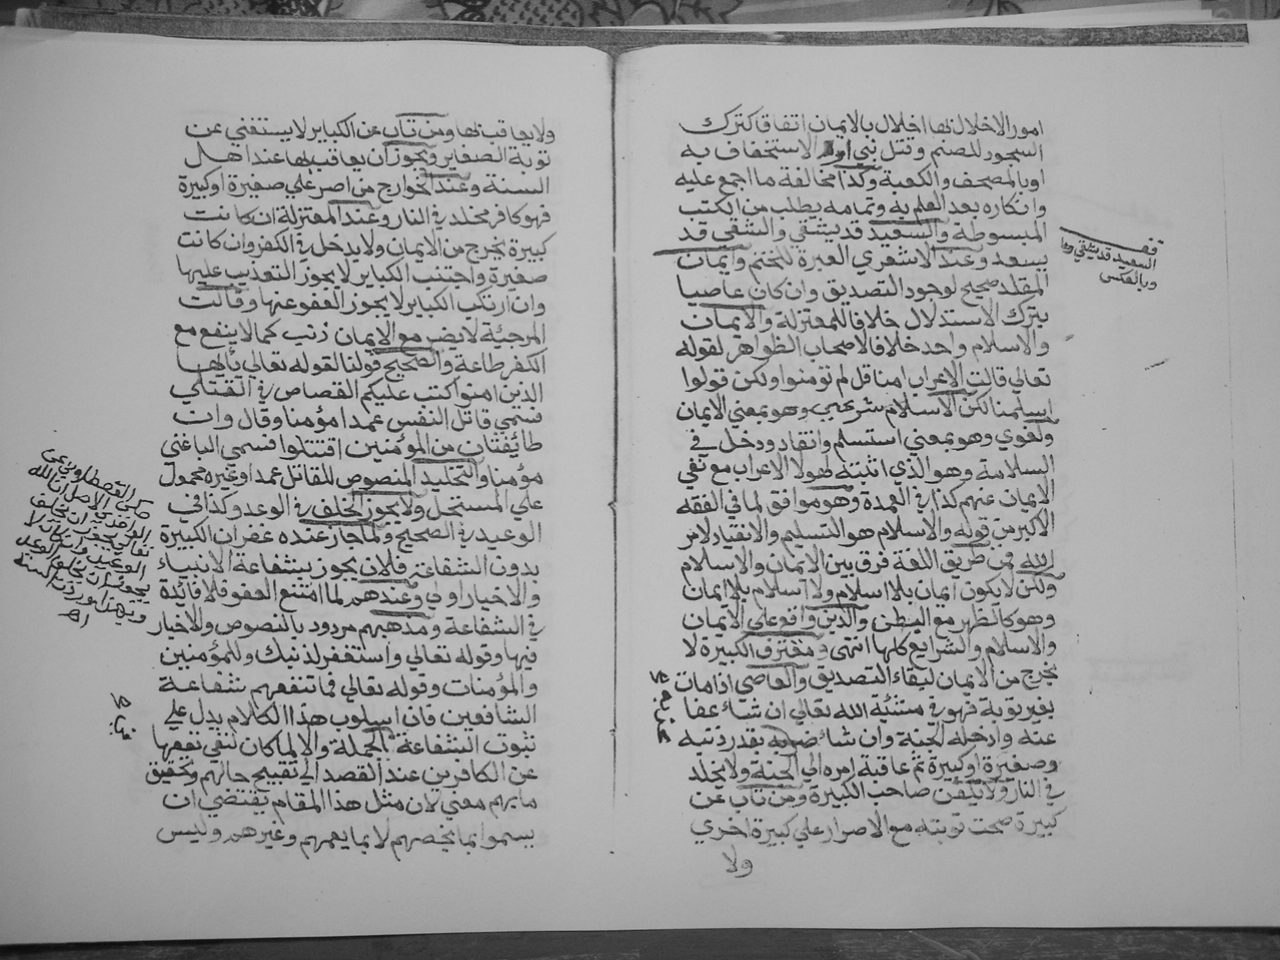 امور الاخلال بها اخلال بالايمان اتفاقا كترك
السجود للصنم وقتل نبي او الاستخفاف به
او بالمصحف والكعبة وكذا مخالفة ما اجمع عليه
وانكاره بعد العلم به وتمامه يطلب من الكتب
المبسوطة والسعيد قد يشقي والشقي قد
يسعد وعند الاشعري العبرة للختم وايمان
المقلد صحيح لوجود التصديق وان كان عاصيا
بترك الاستدلال خلافا للمعتزلة والايمان
والاسلام واحد خلافا لاصحاب الظواهر لقوله
تعالي قالت الاعراب امنا قل لم تومنوا ولكن قولوا
اسلمنا لكن الاسلام شرعي وهو بمعني الايمان
ولغوي وهو بمعني استسلم وانقاد ودخل في
السلامة وهو الذي اثبته لهولا الاعراب مع نفي
الايمان عنهم كذا في العمدة وهو موافق لما في الفقه
الاكبر من قوله والاسلام هو التسليم والانقياد لامر
الله فمن طريق اللغة فرق بين الايمان والاسلام
ولكن لا يكون ايمان بلا اسلام ولا اسلام بلا ايمان
وهو كالظهر مع البطن والدين واقع علي الايمان
والاسلام والشرايع كلها انتهى ومقترف الكبيرة لا
يخرج من الايمان لبقاء التصديق والعاصي اذا مات
بغير توبة فهو في مشيئة الله تعالي ان شاء عفا
عنه وادخله الجنة وان شاء بقدر ذنبه
وصغيرة او كبيرة ثم عاقبة امره الي الجنة ولا يخلد
في النار ولا نتيقن صاحب الكبيرة ومن تاب عن
كبيرة صحت توبته مع الاصرار علي كبيرة اخري
ولا
قف
السعيد قد يشقي
وبالعكس
ولا يعاقب بها ومن تاب عن الكباير لا يستغني عن
توبة الصغاير ويجوز ان يعاقب بها عند اهل
السنة وعند الخوارج من اصر علي صغيرة او كبيرة
فهو كافر مخلد في النار وعند المعتزلة ان كانت
كبيرة يخرج من الايمان ولا يدخل في الكفر وان كانت
صغيرة واجتنب الكباير لا يجوز التعذيب عليها
وان ارتكب الكباير لا يجوز العفو عنها وقالت
المرجئة لا يضر مع الايمان ذنب كما لا ينفع مع
الكفر طاعة والصحيح قولنا لقوله تعالي يأيها
الذين امنوا كتب عليكم القصاص في القتلي
فسمي قاتل النفس عمدا مؤمنا وقال وان
طائفتان من المؤمنين اقتتلوا فسمي الباغي
مؤمنا والتخليد المنصوص للقاتل عمدا وغيره محمول
علي المستحل ولا يجوز الخلف في الوعد وكذا في
الوعيد في الصحيح ولما جاز عنده غفران الكبيرة
بدون الشفاعة فلان يجوز بشفاعة الانبياء
والاخيار اولي وعندهم لما امتنع العفو فلا فايدة
في الشفاعة ومذهبهم مردود بالنصوص والاخبار
فيها وقوله تعالي واستغفر لذنبك وللمؤمنين
والمؤمنات وقوله تعالي فما تنفعهم شفاعة
الشافعين فان اسلوب هذا الكلام يدل علي
ثبوت الشفاعة بالجملة والا لما كان لنفي نفعها
عن الكافرين عند القصد الي تقبيح حالهم وتحقيق
ما بهم معني لان مثل هذا المقام يقتضي ان
يسموا بما يخصهم لا بما يعمهم وغيرهم وليس